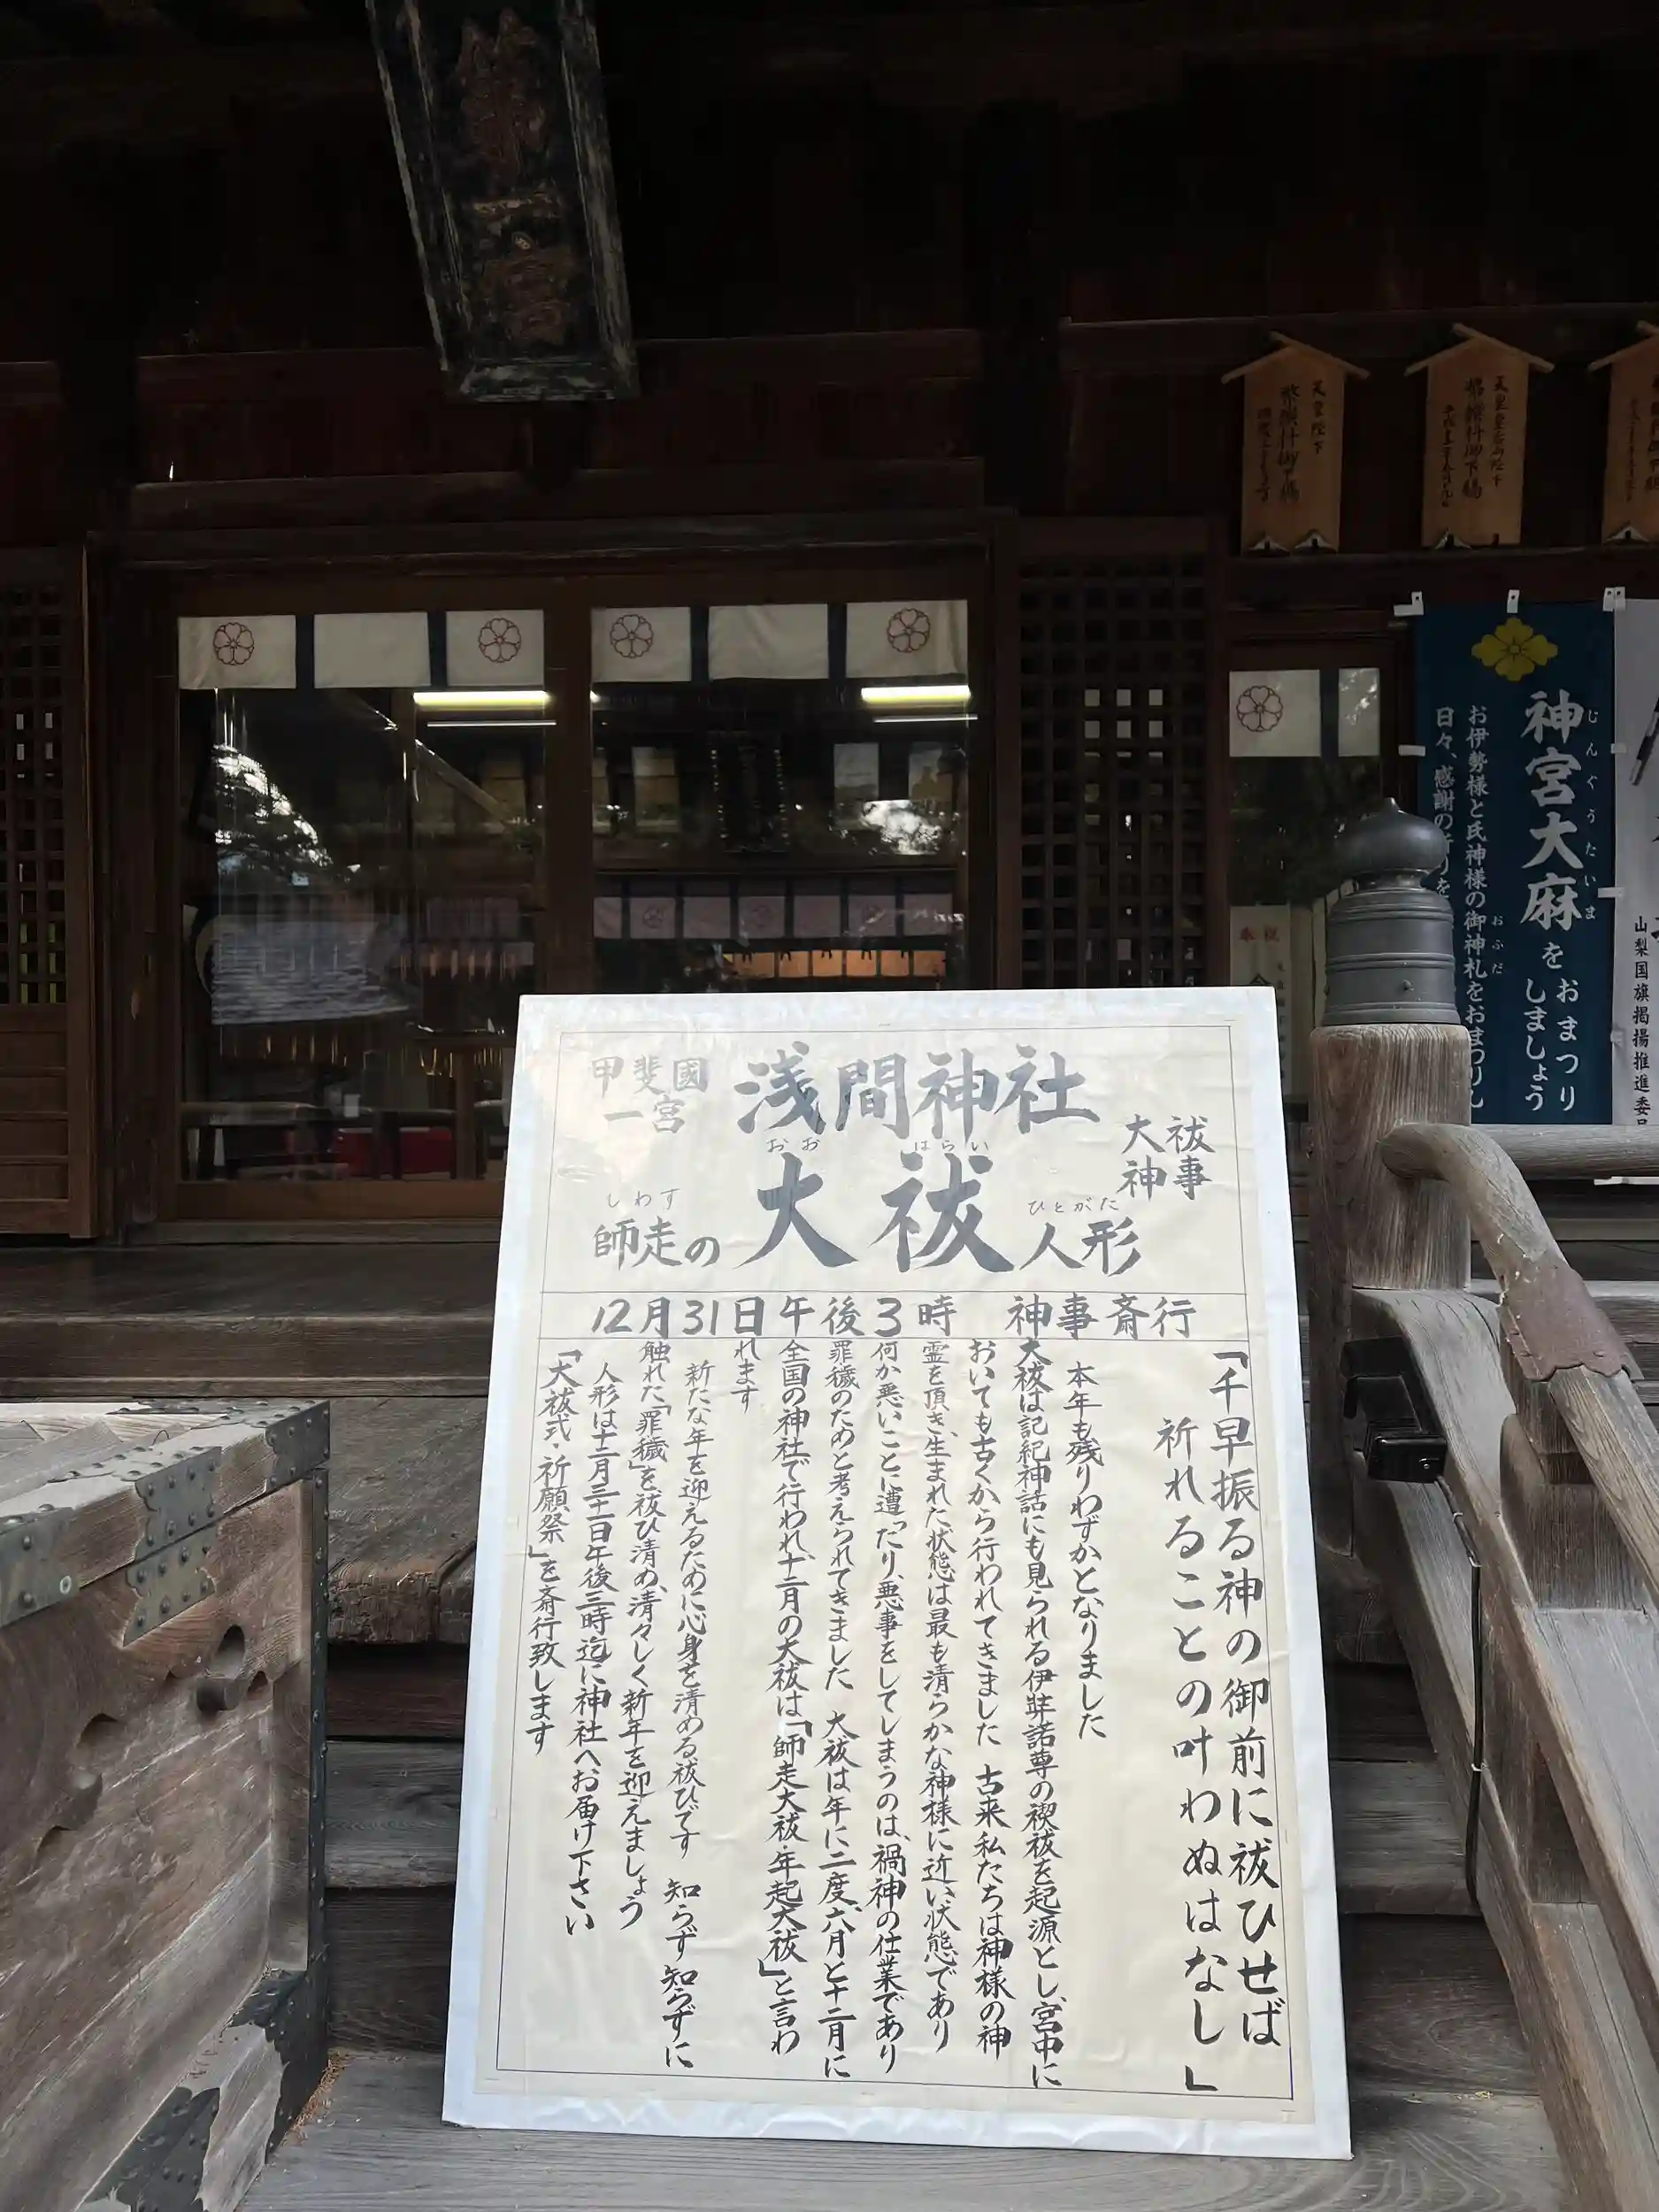 第一宮
天皇陛下
幣饌料御下賜
天皇皇后両陛下
幣饌料御下賜
神宮大麻をおまつりしましょう
じんぐうたいま
お伊勢様と氏神様の御神札をおまつりし
おふだ
日々、感謝の祈りを
山梨国旗掲揚推進委員
奉祝
甲斐國
一宮
浅間神社
大祓
神事
おお はらい
しわす
ひとがた
師走の大祓人形
12月31日午後3時 神事斎行
「千早振る神の御前に祓ひせば
祈れることの叶わぬはなし」
本年も残りわずかとなりました
大祓は記紀神話にも見られる伊弉諾尊の禊祓を起源とし、宮中に
おいても古くから行われてきました 古来私たちは神様の神
霊を頂き、生まれた状態は最も清らかな神様に近い状態であり
何か悪いことに遭ったり、悪事をしてしまうのは、禍神の仕業であり
罪穢のためと考えられてきました 大祓は年に二度、六月と十二月に
全国の神社で行われ、十二月の大祓は「師走大祓・年起大祓」と言わ
れます
新たな年を迎えるために心身を清める祓ひです 知らず知らずに
触れた「罪穢」を祓ひ清め、清々しく新年を迎えましょう
人形は十二月三十一日午後三時迄に神社へお届け下さい
「大祓式・祈願祭」を斎行致します